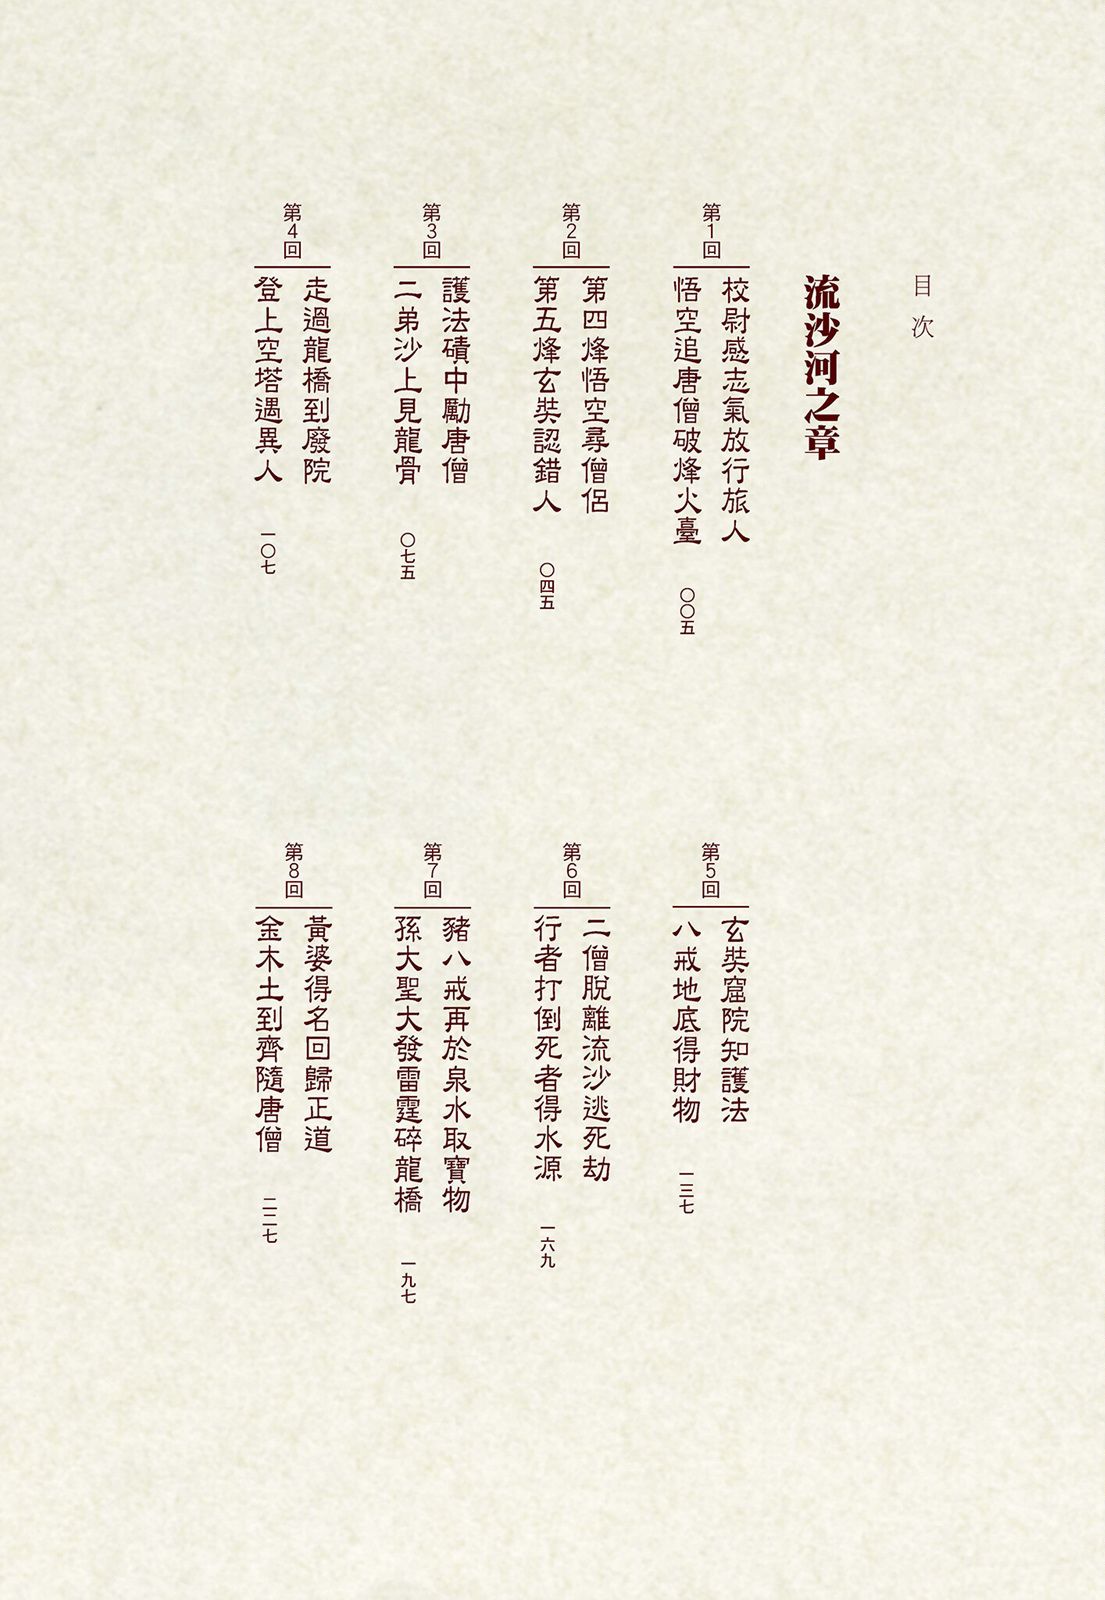 目次
流沙河之章
第1回
校尉感志氣放行旅人
悟空追唐僧破烽火臺
〇〇五
第2回
第四烽悟空尋僧侶
第五烽玄奘認錯人
〇四五
第3回
護法磧中勵唐僧
二弟沙上見龍骨
〇七五
第4回
走過龍橋到廢院
登上空塔遇異人
一〇七
第5回
玄奘窟院知護法
八戒地底得財物
一三七
第6回
二僧脫離流沙逃死劫
行者打倒死者得水源
一六九
第7回
豬八戒再於泉水取寶物
孫大聖大發雷霆碎龍橋
一九七
第8回
黃婆得名回歸正道
金木土到齊隨唐僧
二二七